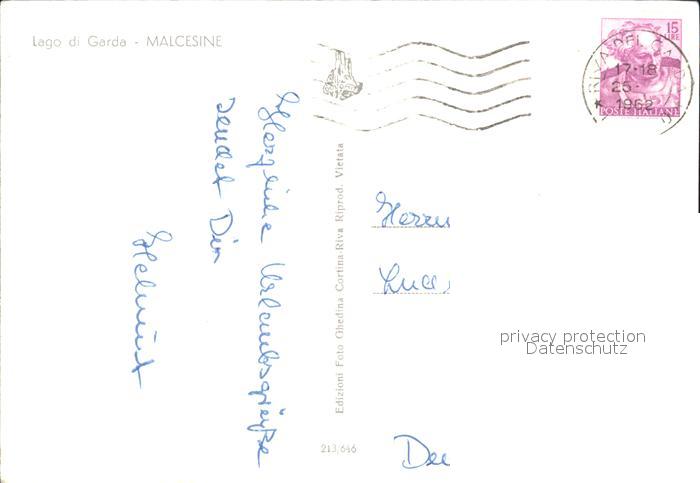 Lago di Garda - MALCESINE
15
LIRE
RIVA DEL
17-18
25-
1962
POSTE ITALIANE
Herzliche Urlaubsgrüße
sendet Dir
Helmut
Edizioni Foto Ghedina Cortina-Riva Riprod. Vietata
Herrn
privacy protection
Datenschutz
213/646